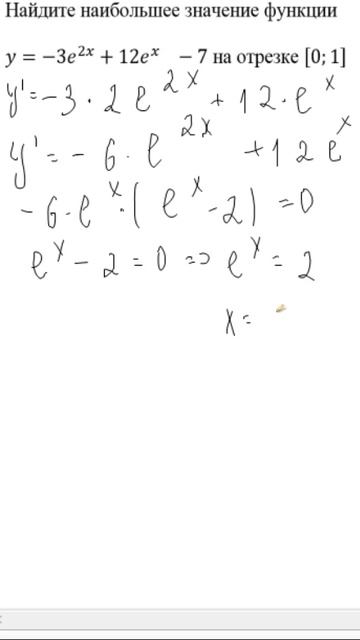 Найдите наибольшее значение функции
y = −3e²ˣ + 12eˣ − 7 на отрезке [0; 1]
y' = −3 · 2e²ˣ + 12 · eˣ
y' = −6 · e²ˣ + 12eˣ
−6 · eˣ · (eˣ − 2) = 0
eˣ − 2 = 0 => eˣ = 2
x =